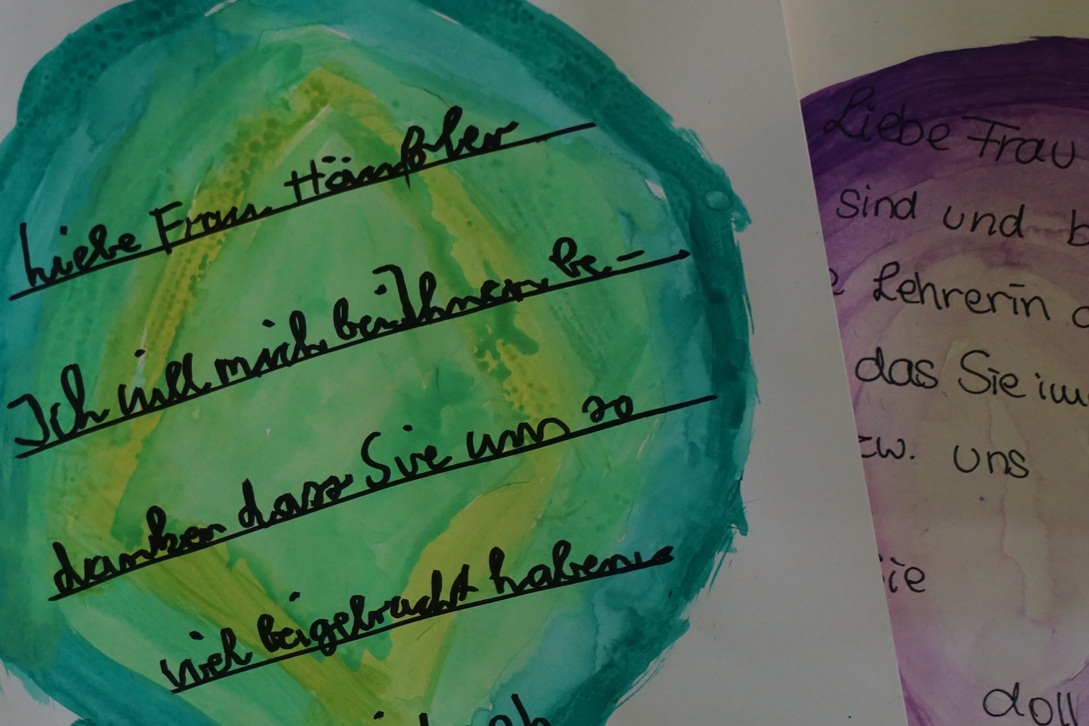 Liebe Frau
Ich will mich bei Ihnen be-
danken dass Sie uns so
viel beigebracht haben
Liebe Frau
sind und b
e Lehrerin
das Sie im
zw. uns
ie
doll